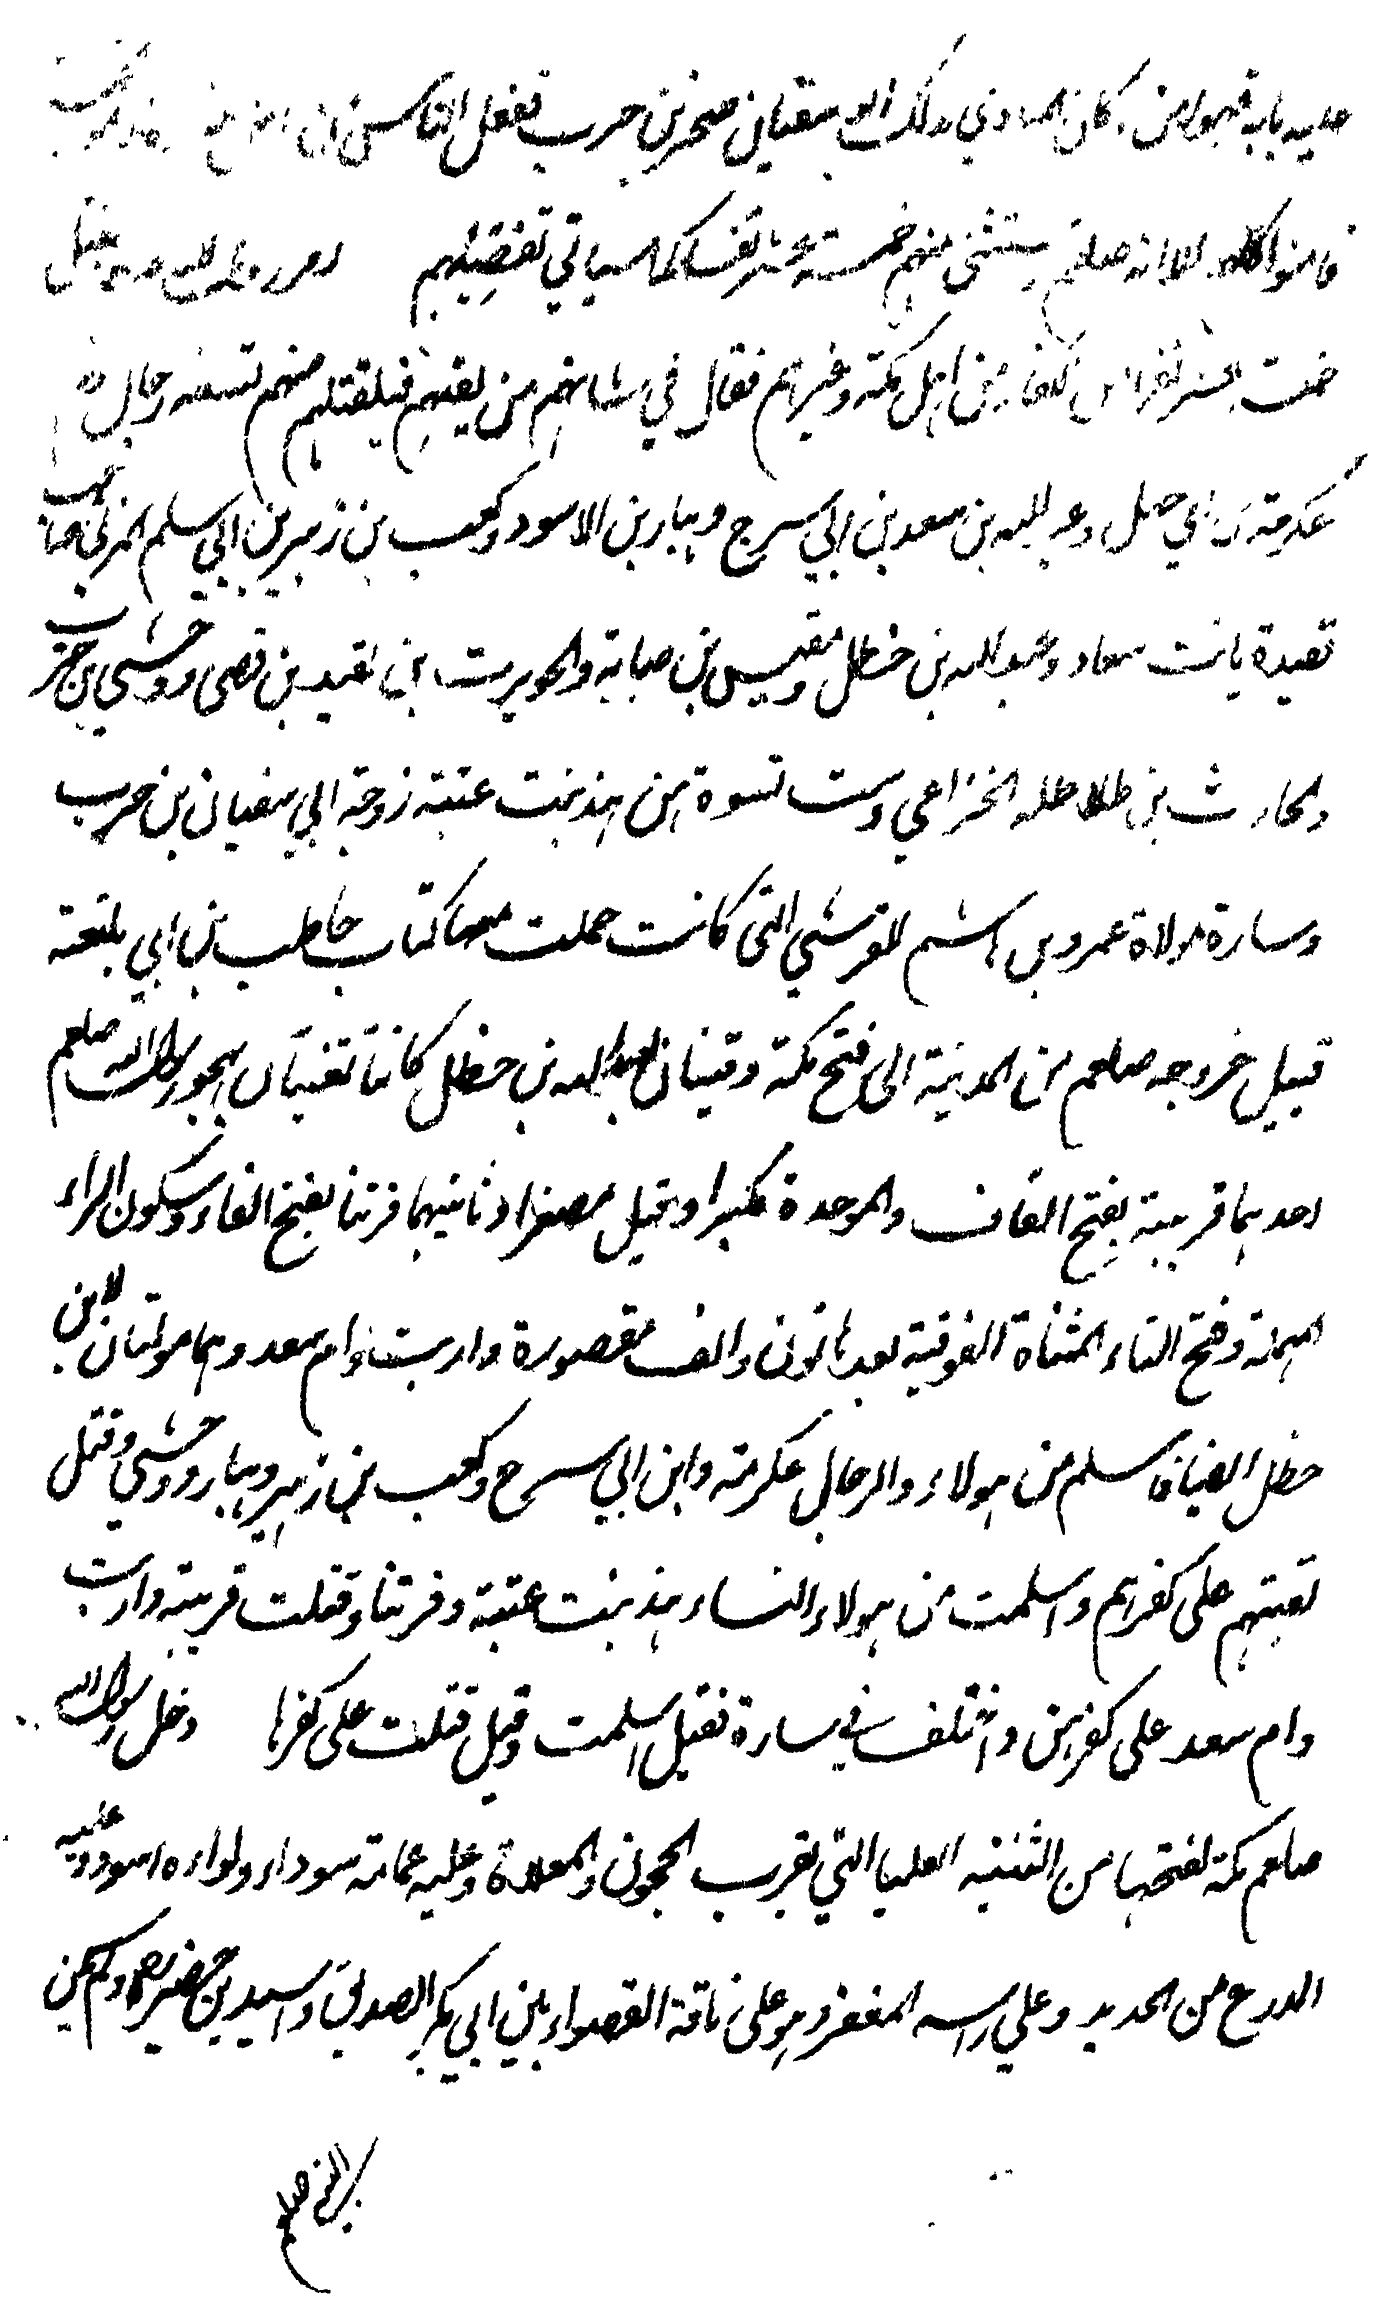 عليه بابه فهو امن وكان المنادي بذلك ابو سفيان صخر بن حرب ففعل الناس
فامنوا كلهم الا انه صلعم يستثنى منهم خمسة عشر نفسا كما سياتي تفضيلهم
خمسة عشر نفرا من الكفار من اهل مكة وغيرهم فقال في شانهم من لقيهم فيلقتلهم منهم تسعة رجال
عكرمة بن ابي جهل وعبد الله بن سعد بن ابي سرح وهبار بن الاسود وكعب بن زهير بن ابي سلم المزني صاحب
قصيدة بانت سعاد وعبد الله بن خطل ومقيس بن صبابة والحويرث ابن نقيد بن قصى ووحشي بن حرب
والحارث بن طلاطله الخزاعي وست نسوة هن هند بنت عتبة زوجة ابي سفيان بن حرب
وسارة مولاة عمرو بن هاشم القرشي التى كانت حملت معها كتاب حاطب بن ابي بلتعة
قبيل خروجه صلعم من المدينة الى فتح مكة وقينتان لعبد الله بن خطل كانتا تغنيان بهجو رسول الله صلعم
احدهما قريبة بفتح القاف والموحدة مكبرا وقيل مصغرا وثانيهما فرتنا بفتح الفاء وسكون الراء
المهملة وفتح التاء المثناة الفوقية بعدها نون والف مقصورة وارنب وام سعد وهما مولتان لابن
خطل ايضا فاسلم من هولاء والرجال عكرمة وابن ابي سرح وكعب بن زهير وهبار ووحشي وقتل
بقيتهم على كفرهم واسلمت من هولاء النساء هند بنت عتبة وفرتنا وقتلت قريبة وارنب
وام سعد على كفرهن واختلف في سارة فقيل اسلمت وقيل قتلت على كفرها ودخل رسول الله
صلعم مكة لفتحها من الثنية العليا التي بقرب الحجون والمعلاة وعليه عمامة سوداء ولواءه اسود وعليه
الدرع من الحديد وعلى راسه المغفر وهو على ناقة القصواء بين ابي بكر الصديق واسيد بن حضير